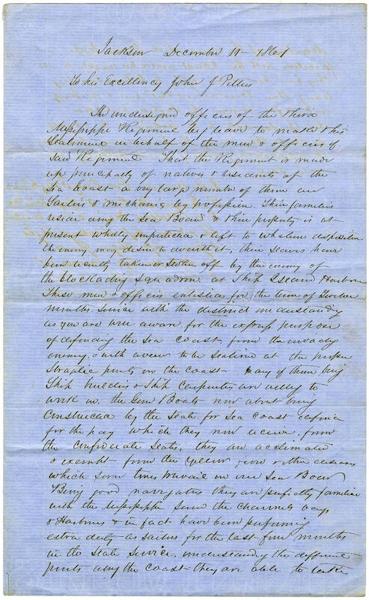 Jackson December 11 - 1861
To his Excellency John J Pettus
The undersigned officers of the Third
Mississippi Regiment beg leave to make this
Statement in behalf of the men & officers of
Said Regiment That the Regiment is made
up principally of natives & residents of the
Sea Coast a very large number of them are
Sailors & mechanics by profession Their families
reside along the Sea Board & their property is at
present wholly unprotected & left to whatever disposition
the enemy may desire to make of it, their slaves have
been recently taken or stolen off by the enemy of
the blockading Squadron at Ship Island Harbour
These men & officers enlisted for the term of twelve
months Service with the distinct understanding
as you are well aware for the express purpose
of defending the Sea Coast from the invading
enemy, & with a view to be stationed at the proper
Strategic points on the Coast - Many of them being
Ship builders & Ship Carpenters are willing to
work on the Gun Boats now about being
Constructed by the State for Sea Coast defence
for the pay which they now receive from
the Confederate States, they are acclimated
& exempt from the yellow fever & other diseases
which some times prevail on our Sea Board
Being good navigators they are perfectly familiar
with the Mississippi Sound the channels bays
& Harbours & in fact have been performing
extra duty as Sailors for the last five months
in the State Service, understanding the different
points along the Coast they are able to